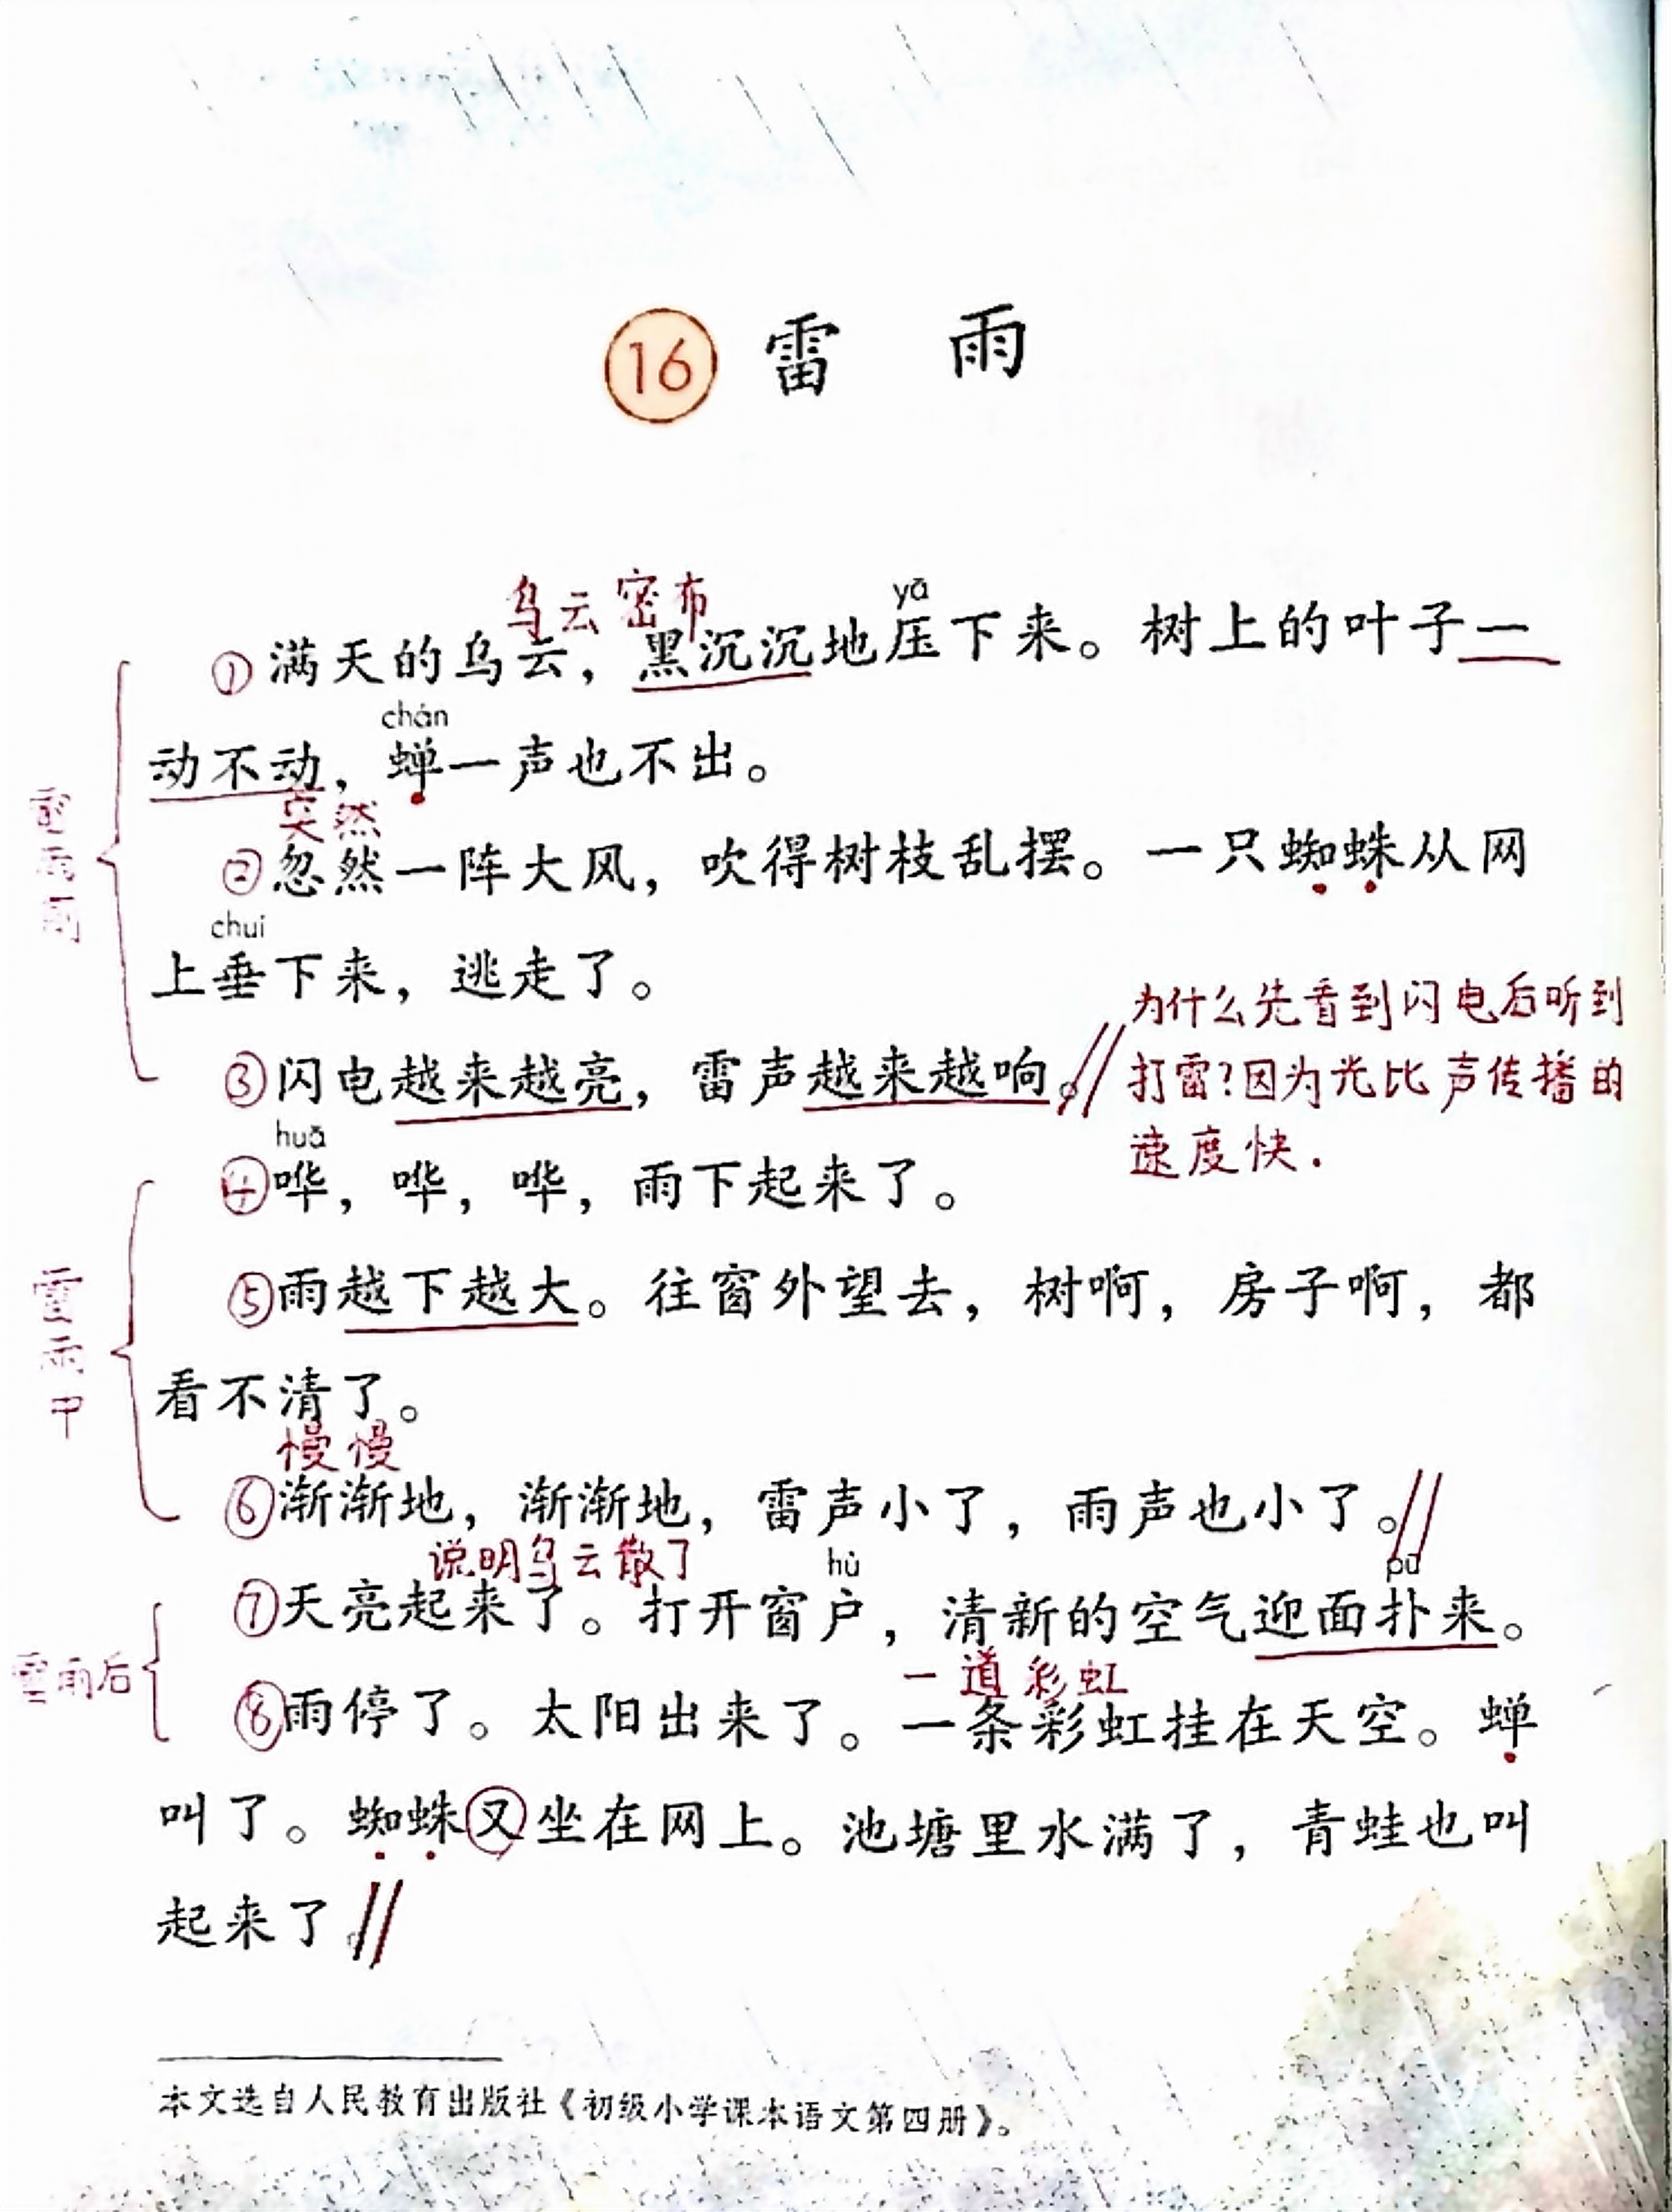 16 雷 雨
乌云密布
yā
①满天的乌云，黑沉沉地压下来。树上的叶子一
chán
动不动，蝉一声也不出。
突然
②忽然一阵大风，吹得树枝乱摆。一只蜘蛛从网
chuí
上垂下来，逃走了。
雷雨前
③闪电越来越亮，雷声越来越响。//
为什么先看到闪电后听到
打雷?因为光比声传播的
速度快.
huā
④哗，哗，哗，雨下起来了。
⑤雨越下越大。往窗外望去，树啊，房子啊，都
看不清了。
雷雨中
慢慢
⑥渐渐地，渐渐地，雷声小了，雨声也小了。//
说明乌云散了
hù pū
⑦天亮起来了。打开窗户，清新的空气迎面扑来。
雷雨后
一道彩虹
⑧雨停了。太阳出来了。一条彩虹挂在天空。蝉
叫了。蜘蛛又坐在网上。池塘里水满了，青蛙也叫
起来了。//
本文选自人民教育出版社《初级小学课本语文第四册》。